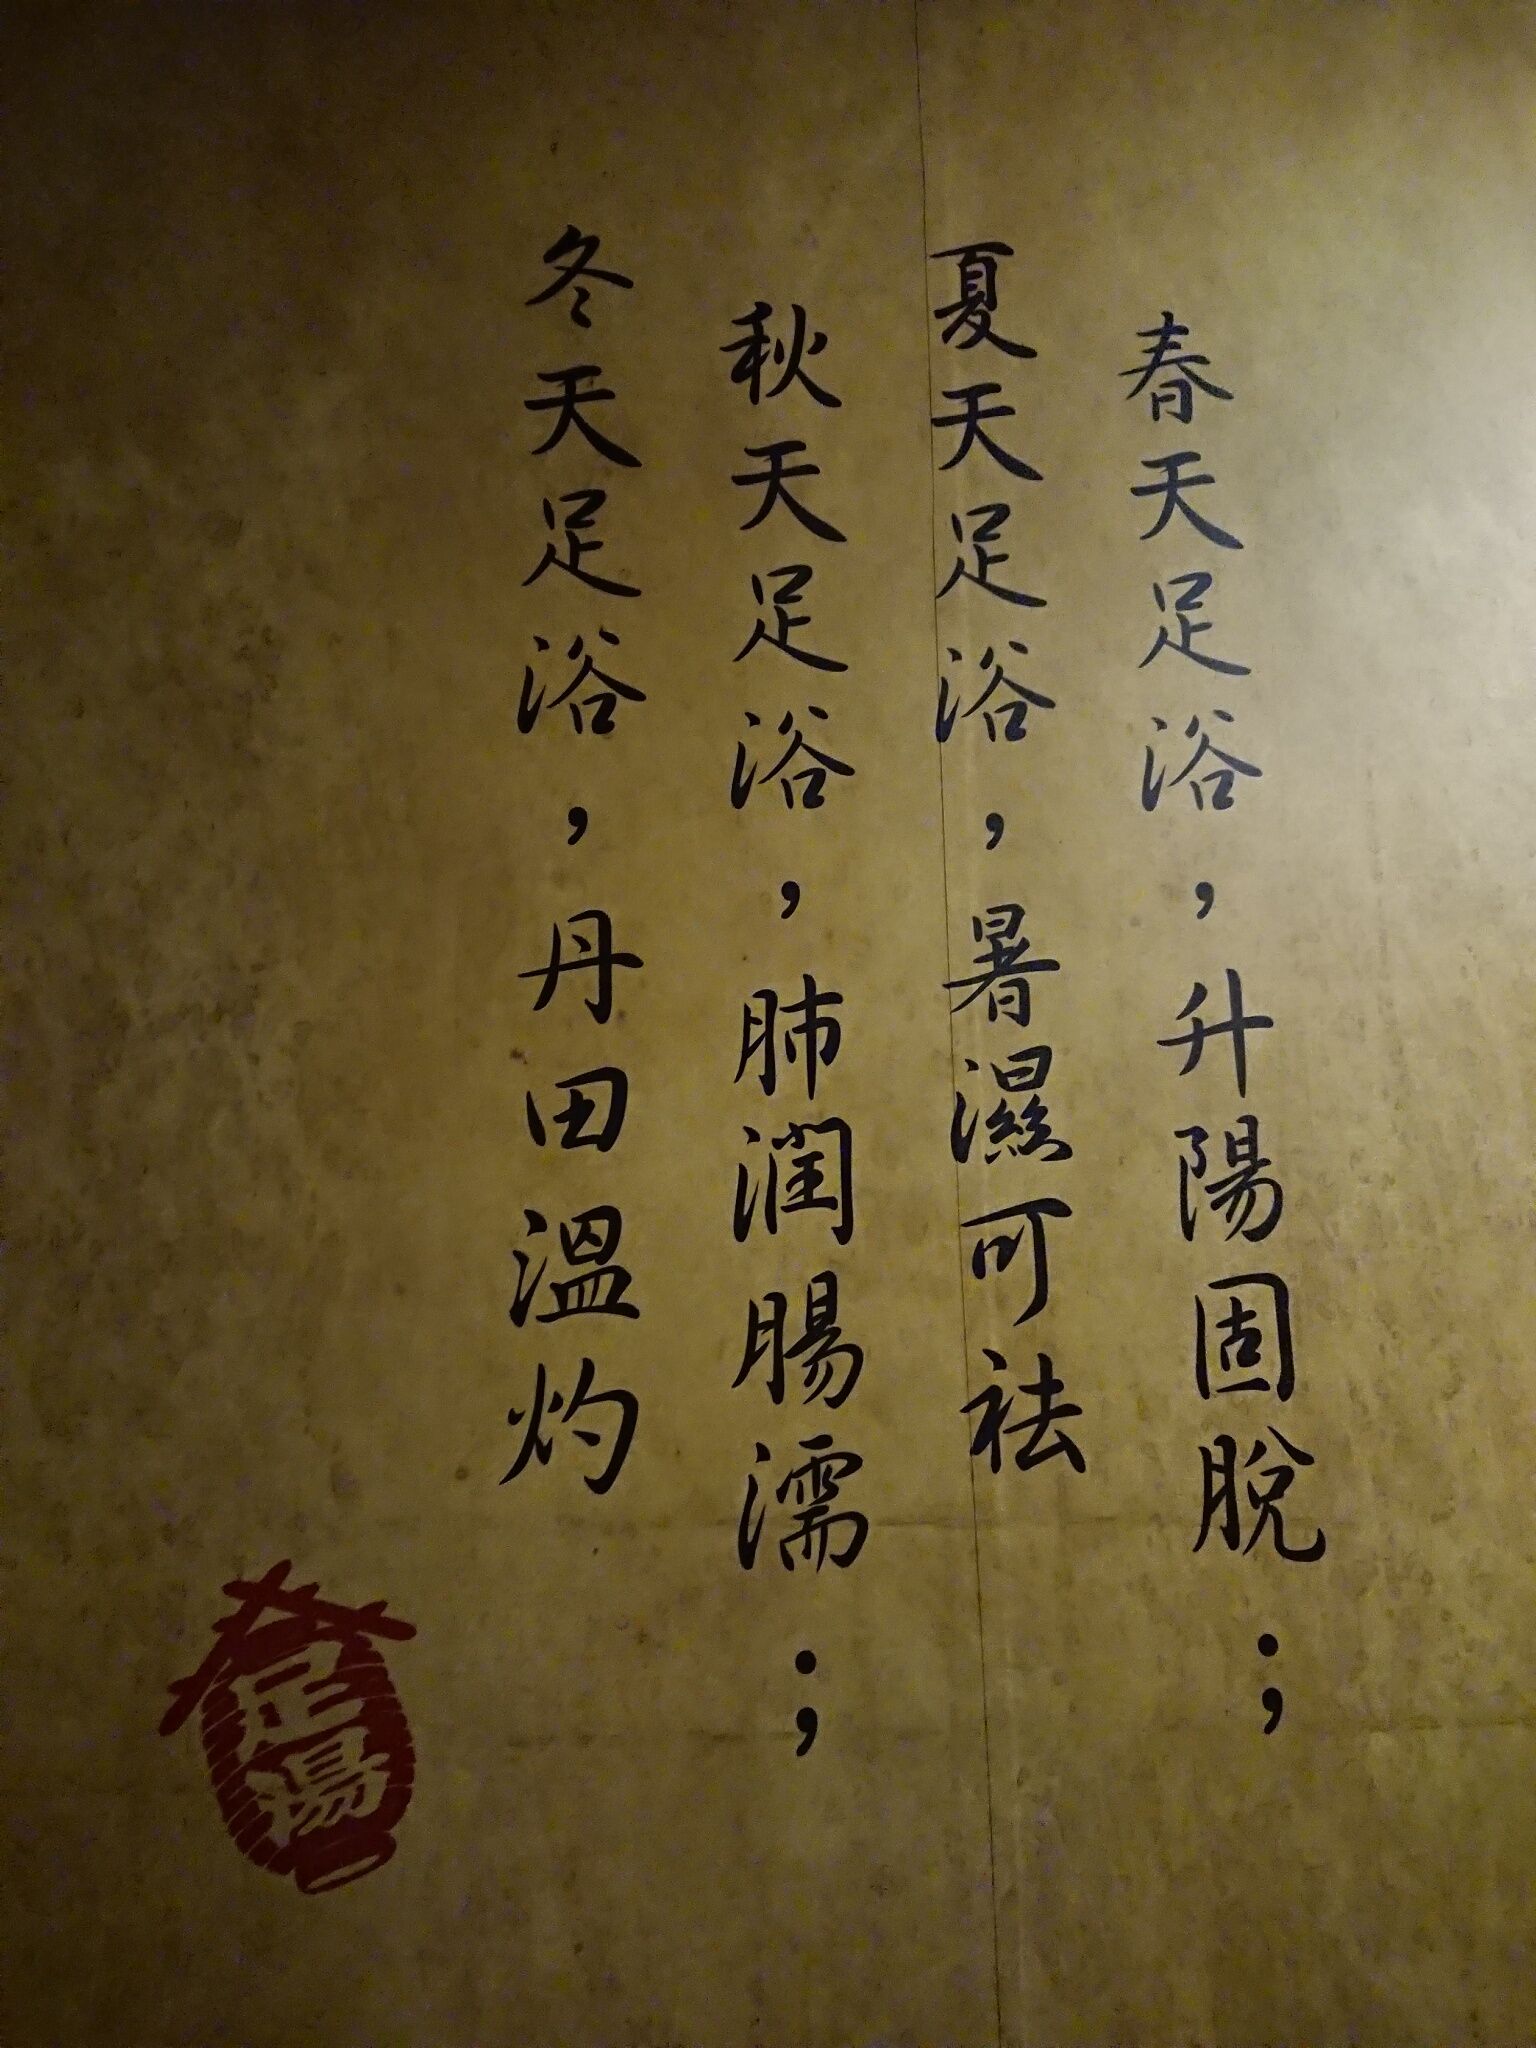 春天足浴，升陽固脫；
夏天足浴，暑濕可祛
秋天足浴，肺潤腸濡；
冬天足浴，丹田溫灼
正湯